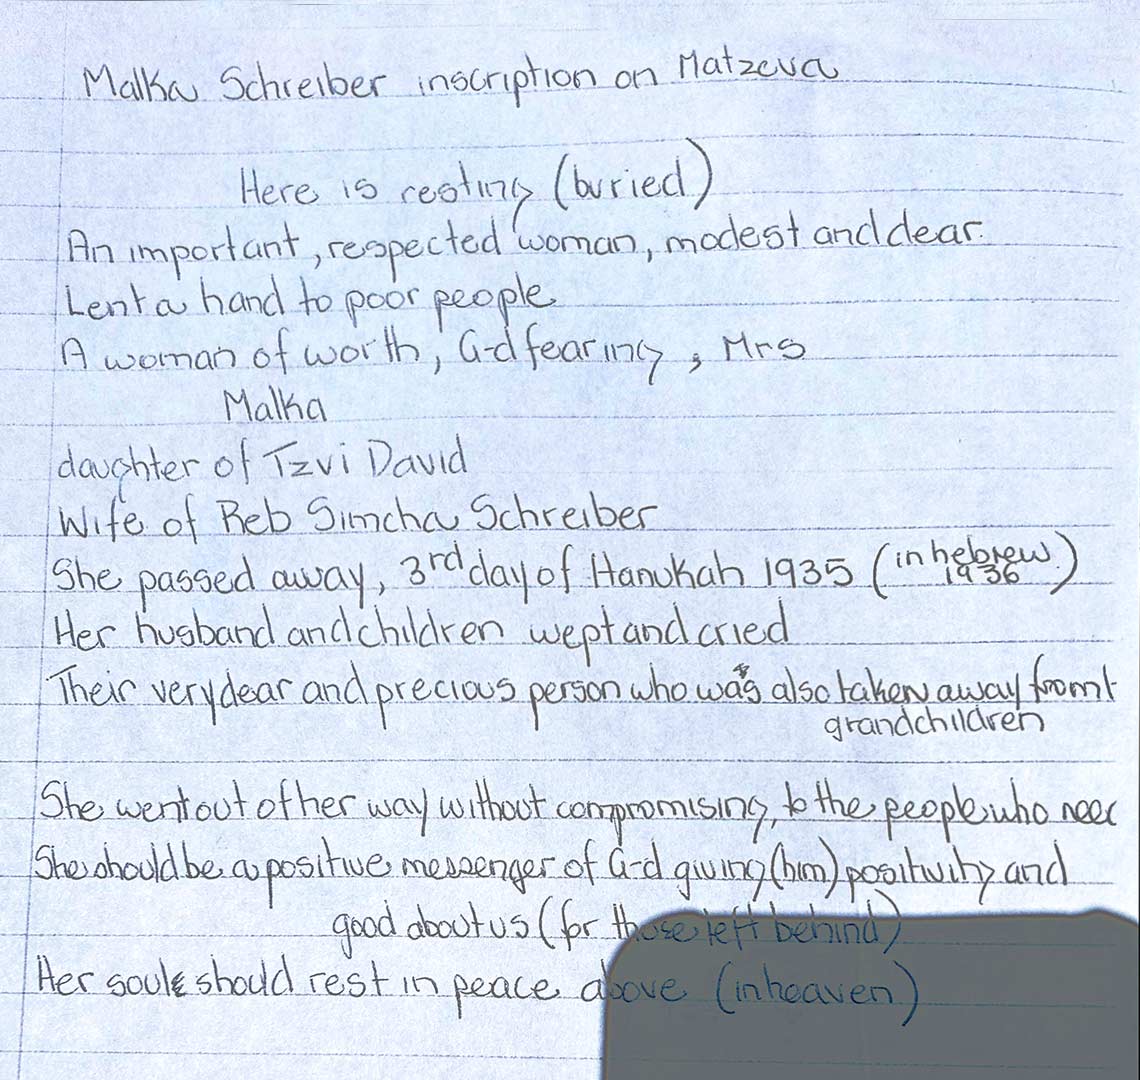 Malka Schreiber inscription on Matzeva
Here is resting (buried)
An important, respected woman, modest and dear.
Lent a hand to poor people
A woman of worth, G-d fearing, Mrs
Malka
daughter of Tzvi David
Wife of Reb Simcha Schreiber
She passed away, 3rd day of Hanukah 1935 (in hebrew 1936)
Her husband and children wept and cried
Their very dear and precious person who was also taken away from
grandchildren
She went out of her way without compromising, to the people who
She should be a positive messenger of G-d giving (him) positivity and
good about us (for those left behind)
Her soul should rest in peace above (in heaven)